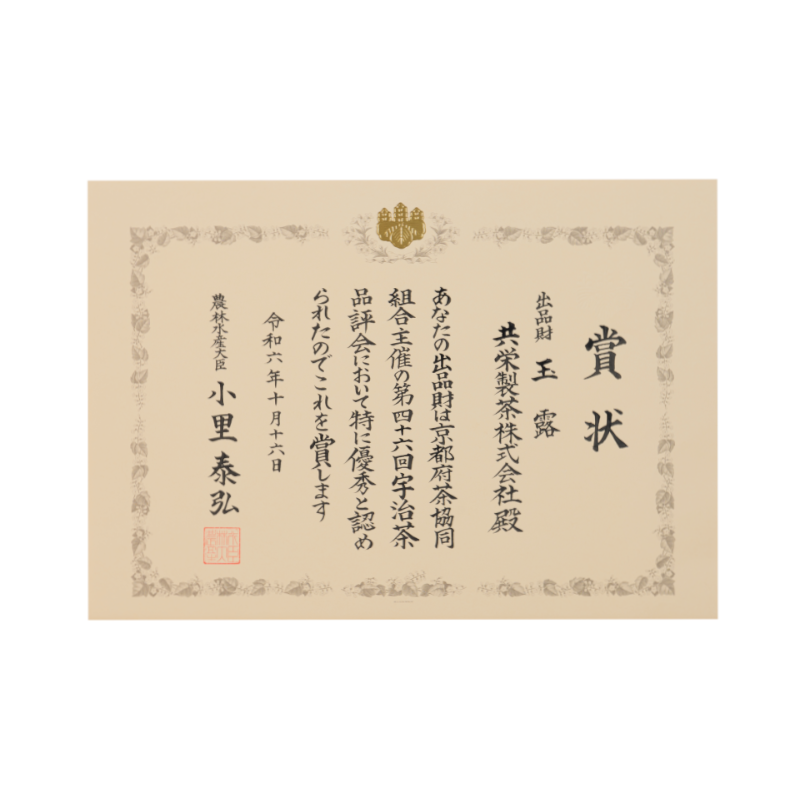 賞状
出品財 玉露
共栄製茶株式会社殿
あなたの出品財は京都府茶協同
組合主催の第四十六回宇治茶
品評会において特に優秀と認め
られたのでこれを賞します
令和六年十月十六日
農林水産大臣 小里泰弘